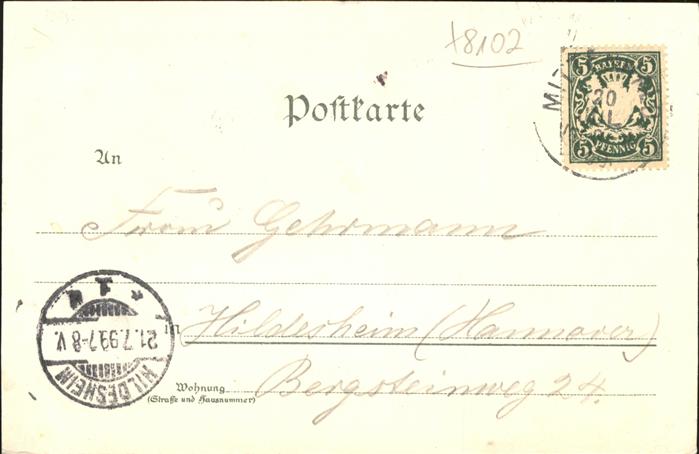 x8102
Postkarte
5 BAYERN 5
5 PFENNIG 5
20
An
Gehrmann
21.7.99.7-8 V.
HILDESHEIM
in Hildesheim (Hannover)
Wohnung
(Straße und Hausnummer)
Bergsteinweg 24.